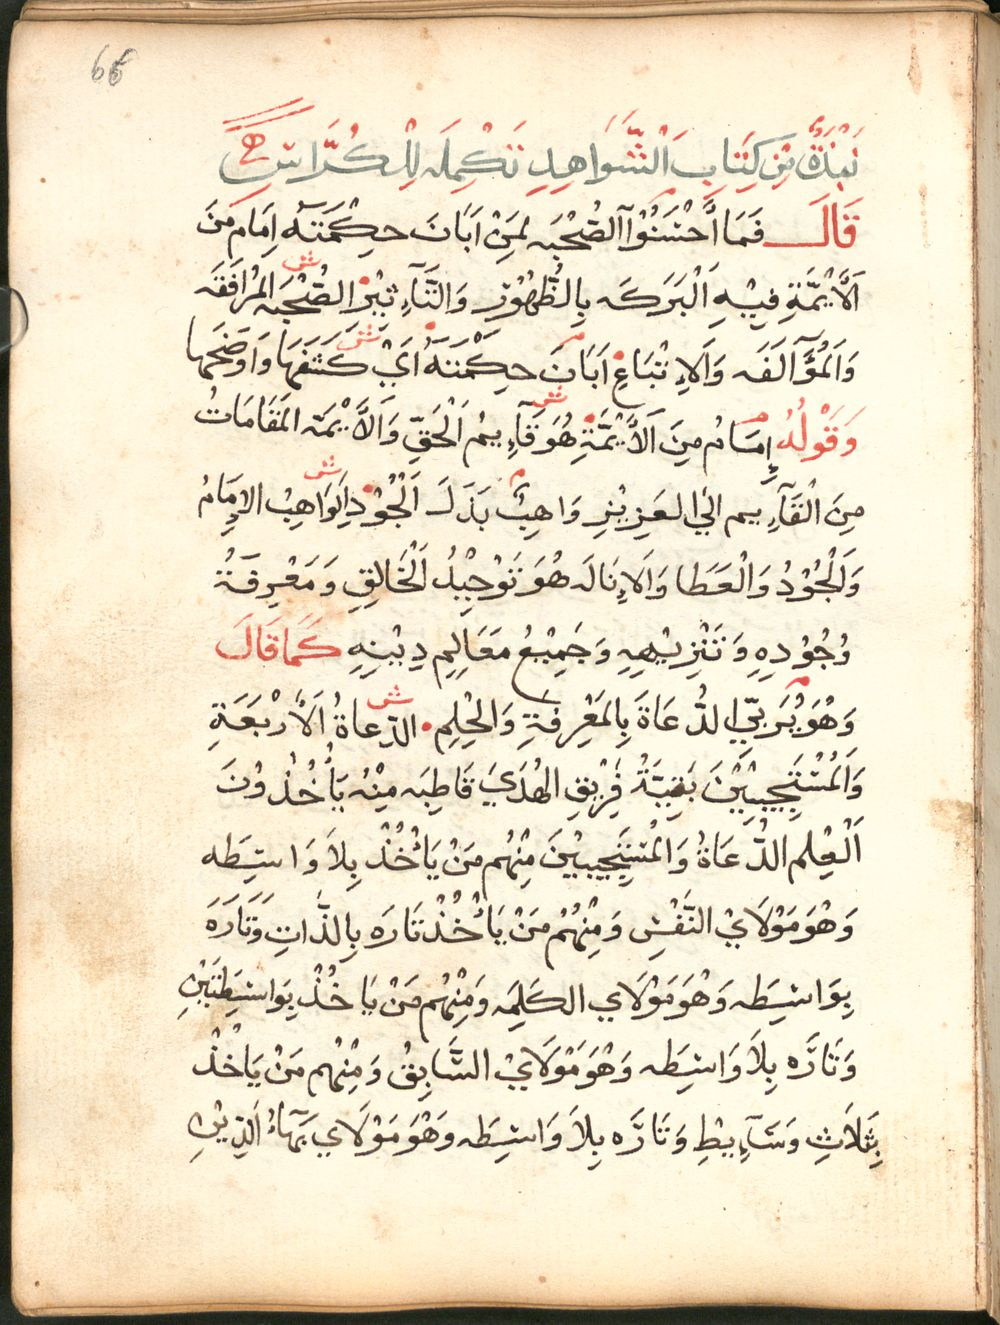 66
نُبْذَةٌ مِن كِتَابِ الشَّوَاهِدِ تَكْمِلَه لِلْكُرَّاسِ
قَالَ فَمَا اَحْسَنُوْا الصُّحْبَه لِمَنْ اَبَانَ حِكْمَتَهُ اِمَام مِنَ
الاَئِمَّةِ فِيْهِ اَلْبَرَكَه بِالظُّهُوْرِ وَالتَّآءِثِيْرْ ش الصُّحْبَه المُرَافَقَه
وَالمُؤَآلَفَه وَاَلاِتْبَاعِ اَبَانَ حِكْمَتَهُ ش اَيْ كَشَفَهَا وَاَوضَحَهَا
وَقَوْلُهُ إِمَامٌ مِنَ اَلاَئِمَّةِ ش هُوَ قَآءِيمُ اَلْحَقِّ وَالاَئِمَّه المَقَامَاتُ
مِنَ الْقَآءِيم الي العَزِيْزِ وَاهِبٌ بَذَلَ اَلْجُوْد ش اَلوَاهِبْ الاِمَامُ
وَالْجُوْدُ وَالْعَطَا وَاَلاِنَالَه هُوَ تَوْحِيْدُ اَلْخَالِقِ وَمَعْرِفَةُ
وُجُوْدِهِ وَتَنْزِيْهِهِ وَجَمِيْعُ مَعَالِمِ دِيْنِهِ كَمَا قَالَ
وَهُوَ يُرَبِّي الدُّعَاةَ بِالمَعْرِفَةِ وَالحُلمِ ش الدِّعَاةُ اَلاَرْبَعَةِ
وَاَلمُسْتَجِيْبِيْنَ بَقِيَّةُ فَرِيْقِ الهُدَيَ قَاطِبَه مِنْهُ يَأْخُذُوْنَ
اَلْعِلم الدُّعَاةُ وَالْمُسْتَجِيْبِيْنَ مِنْهُم مَنْ يَاْخُذْ بِلاَ وَاسِطَه
وَهُوَ مَوْلاَيْ النَّفْسِ وَمِنْهُمْ مَنْ يَاْخُذْ تَارَه بِالذَّاتِ وَتَارَه
بِوَاسِطَه وَهُوَ مَوْلاَي الكَلِمَه وَمِنْهُم مَنْ يَاخُذْ بِوَاسِطَتَيْنِ
وَتَارَه بِلاَ وَاسِطَه وَهُوَ مَوْلاَيْ السَّابِقْ وَمِنْهُم مَنْ يَاخُذْ
بِثَلاَثِ وَسَآءِيطِ وَتَارَه بِلاَ وَاسِطَه وَهُوَ مَوْلاَي بَهَآءُ الدِّيْنِ